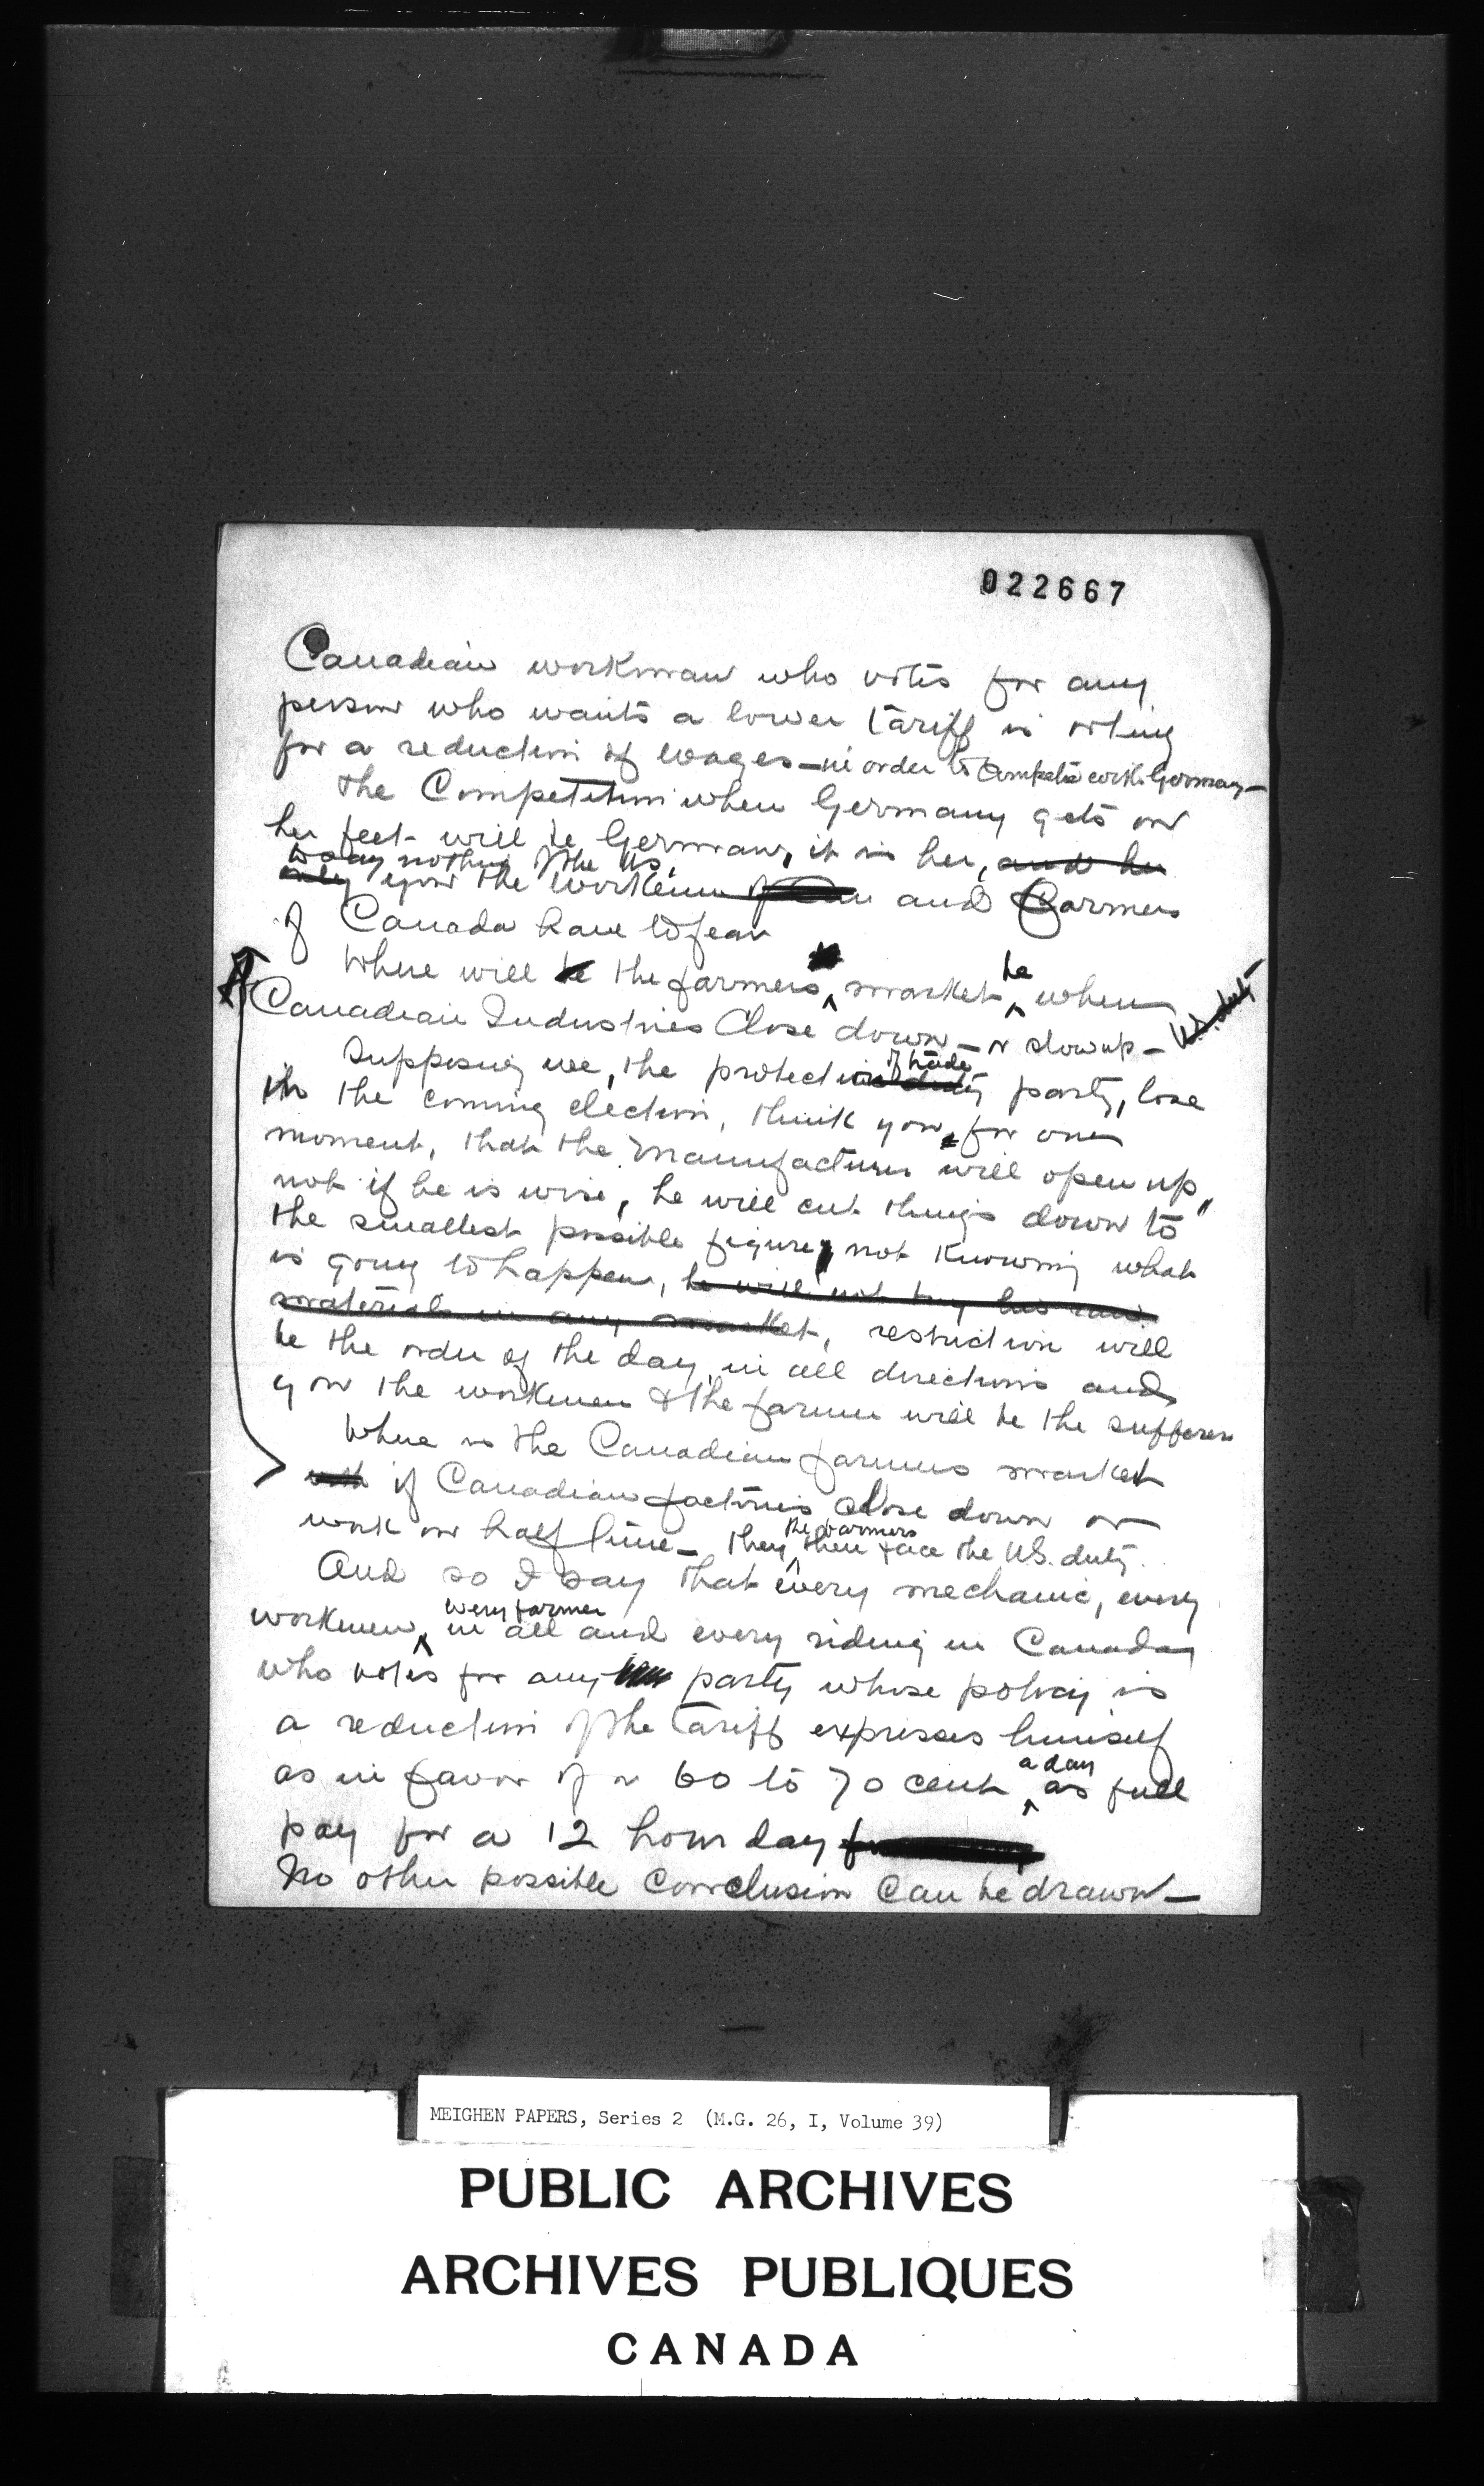 022667
Canadian workman who votes for any
person who wants a lower tariff is voting
for a reduction of wages — in order to compete with Germany —
the Competition when Germany gets on
her feet will be German, it is her, and her
to say nothing of the US.
only you the workmen of Can and Farmers
of Canada have to fear
Where will be the farmers market be when
Canadian Industries Close down — or slow up —
U.S. duty
Supposing we, the protection duty of trade party, lose
in the coming election, think you, for one
moment, that the manufacturer will open up,
not if he is wise, he will cut things down to
the smallest possible figure, not knowing what
is going to happen, he will not buy his raw
material in any market, restriction will
be the order of the day in all directions and
you the workmen & the farmer will be the sufferers
Where is the Canadian farmers market
if Canadian factories close down or
work on half time — they the farmers then face the U.S. duty.
And so I say that every mechanic, every
workmen, every farmer in all and every riding in Canada
who votes for any party whose policy is
a reduction of the tariff expresses himself
as in favor of a 60 to 70 cent a day as full
pay for a 12 hour day
No other possible conclusion can be drawn —
MEIGHEN PAPERS, Series 2 (M.G. 26, I, Volume 39)
PUBLIC ARCHIVES
ARCHIVES PUBLIQUES
CANADA